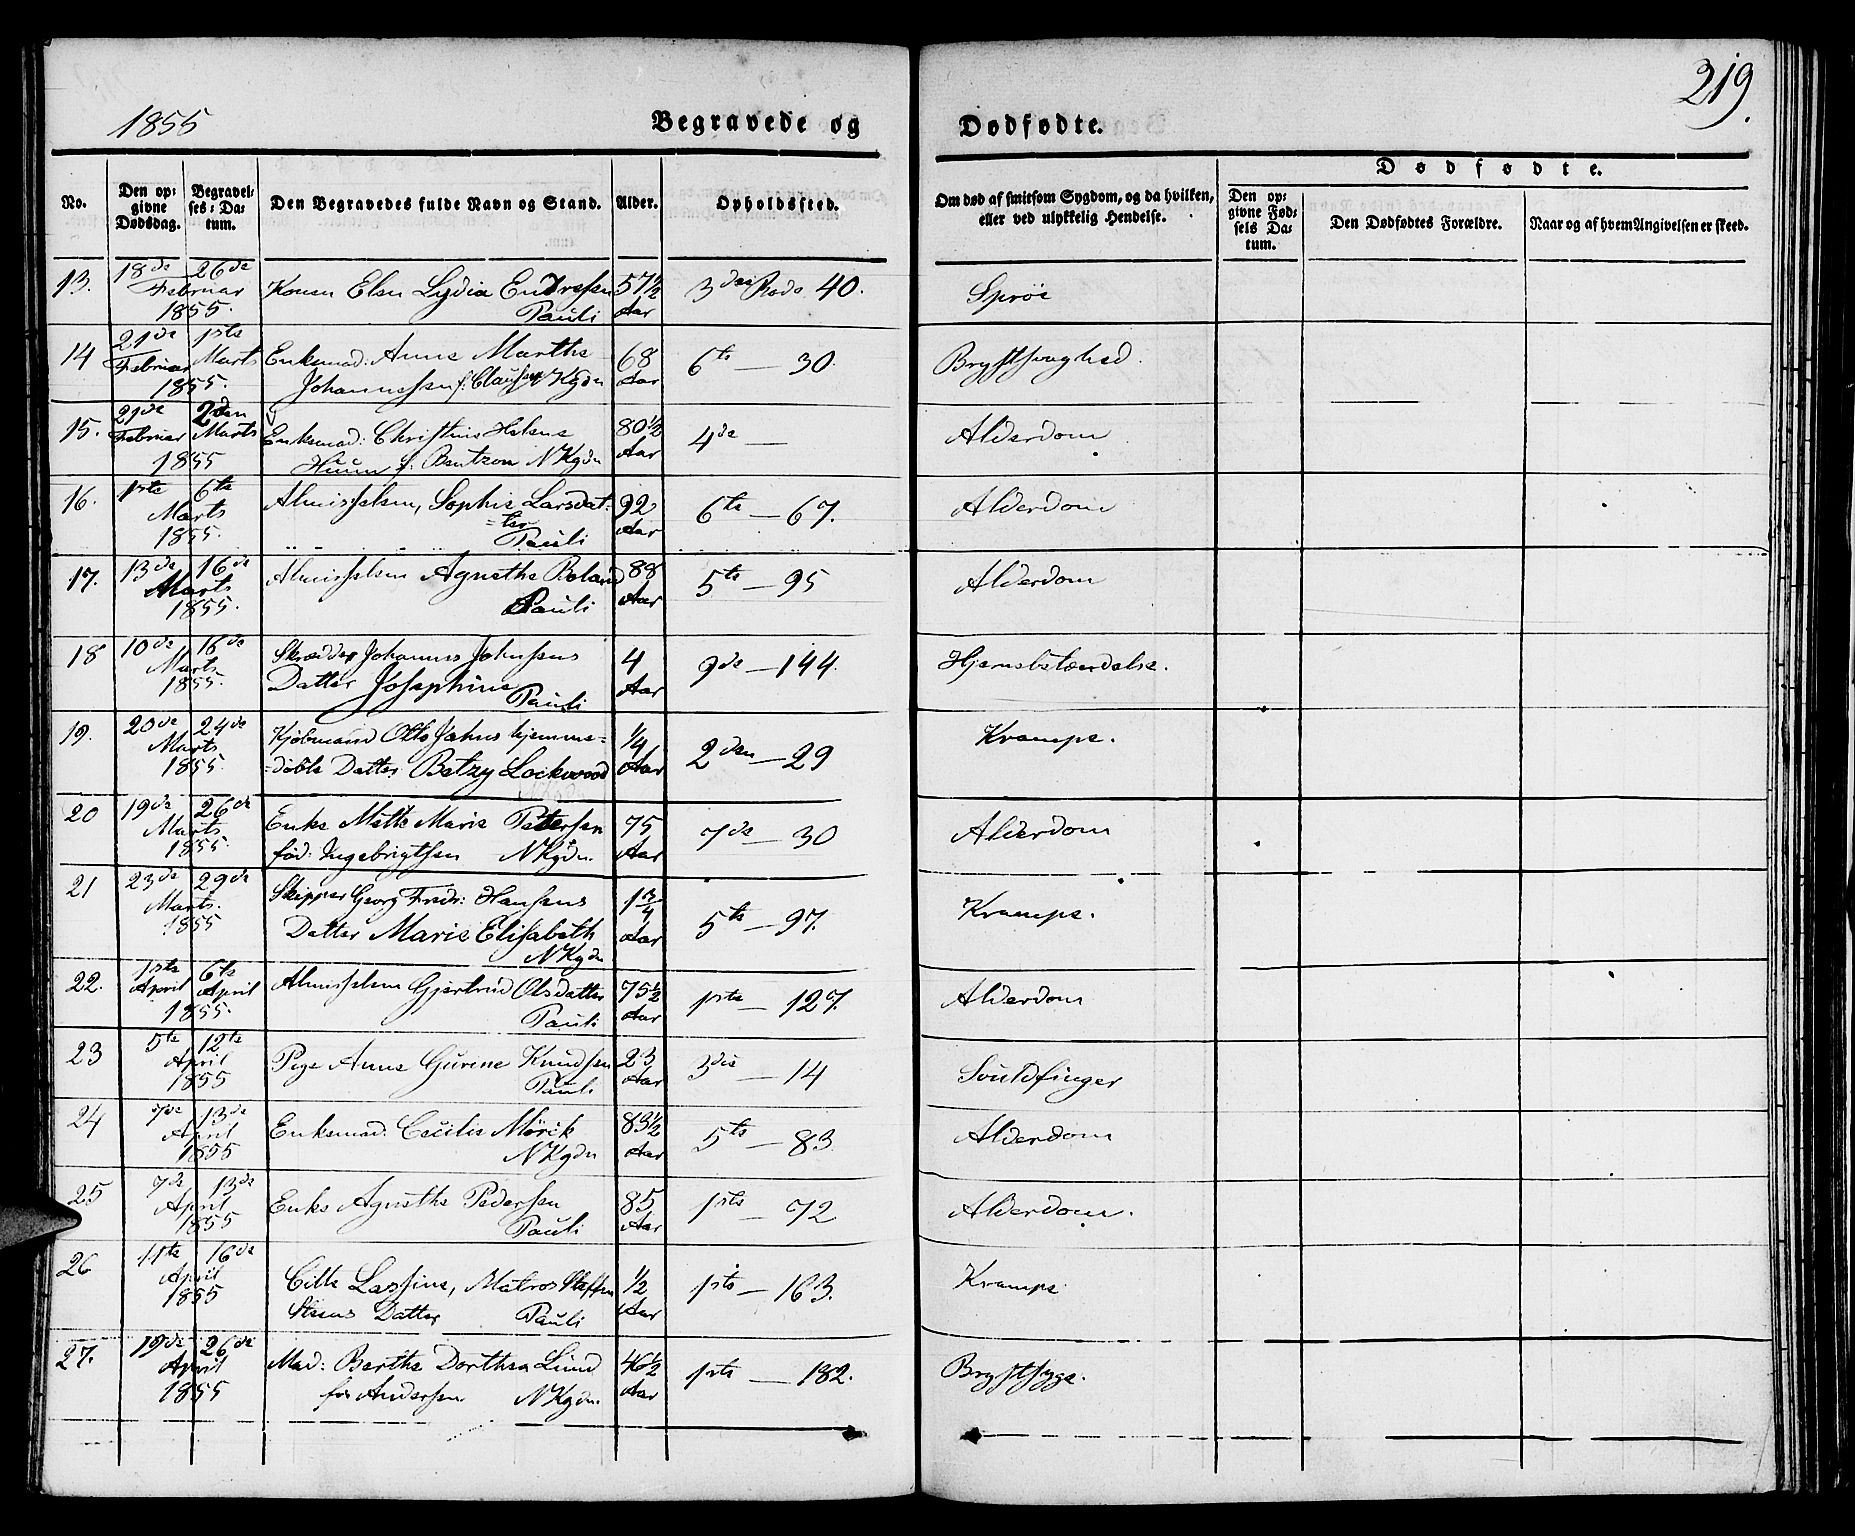 1855
Begravede og
Dødfødte.
219.
No.
Den op=
givne
Dødsdag.
Begravel=
ses=Da=
tum.
Den Begravedes fulde Navn og Stand.
Alder.
Opholdssted.
Om død af smitsom Sygdom, og da hvilken,
eller ved ulykkelig Hendelse.
Dødfødte.
Den op=
givne Fød=
sels Da=
tum.
Den Dødfødtes Forældre.
Naar og af hvem Angivelsen er skeed.
13. 18de 26de Februar 1855.
Konen Elen Lydia Endresen
Pauli
57½ Aar
3die Rode 40.
14 21de Februar 1ste Marts 1855.
Enkemad: Anne Marthe
Johannessen f: Claussen NKgdn
68 Aar
6te — 30.
Brystsvaghed.
15. 21de Februar 2den Marts 1855
Enkemad: Christine Helene
f: Bentzon NKgdn
80½ Aar
4de —
Alderdom
16. 1ste 6te Marts 1855.
Almisselem, Sophie Larsdat=
=ter
Pauli
92 Aar
6te — 67.
Alderdom
17. 13de 16de Marts 1855.
Almisselem Agnethe Boland
Pauli
88 Aar
5te — 95
Alderdom
18 10de 16de Marts 1855.
Skrædder Johannes Johnsens
Datter Josephine
Pauli
4 Aar
9de — 144.
Hjernebetændelse.
19. 20de 24de Marts 1855.
Kjøbmand Otto Jahns hjemme=
=døbte Datter Betzy Lockwood
¼ Aar
2den — 29
Krampe.
20 19de 26de Marts 1855.
Enke Mette Marie Petersen
fød: Ingebrigtsen NKgdn.
75 Aar
7de — 30
Alderdom
21 23de 29de Marts. 1855
Skipper Georg Fredr: Hansens
Datter Marie Elisabeth
NKgdn
1¾ Aar
5te — 97.
Krampe.
22. 1ste April 6te April 1855.
Almisselem Gjertrud Olsdatter
Pauli
75½ Aar
1ste — 127.
Alderdom
23 5te 12te April 1855
Pige Anne Gurine Knudsen
Pauli
23 Aar
3die — 14
Svuldfinger
24 7de 13de April 1855
Enkemad: Cecilie Mörck
NKgdn
83½ Aar
5te — 83
Alderdom
25 7de 13de April 1855
Enke Agnethe Pedersen
Pauli
85 Aar
1ste — 72
Alderdom.
26 11te 16de April 1855
Cille Lassine, Matros Steffen
Steens Datter Pauli
½ Aar
1ste — 163.
Krampe
27. 19de 26de April 1855
Mad: Berthe Dorthea Lund
fød Andersen NKgdn.
46½ Aar
1ste — 182.
Brystsyge.